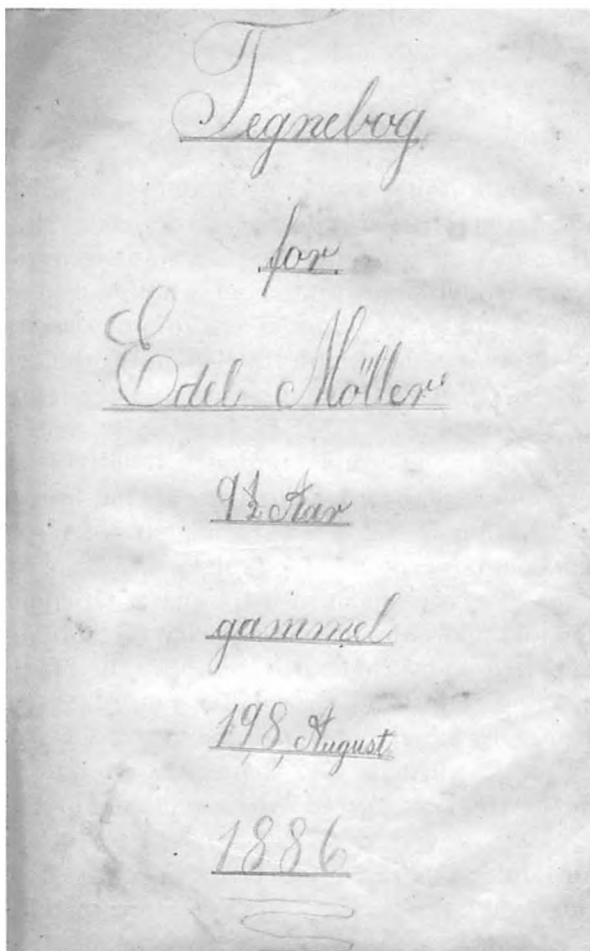 Tegnebog
for
Edel Möller
9½ Aar
gammel
19, 8, August
1886